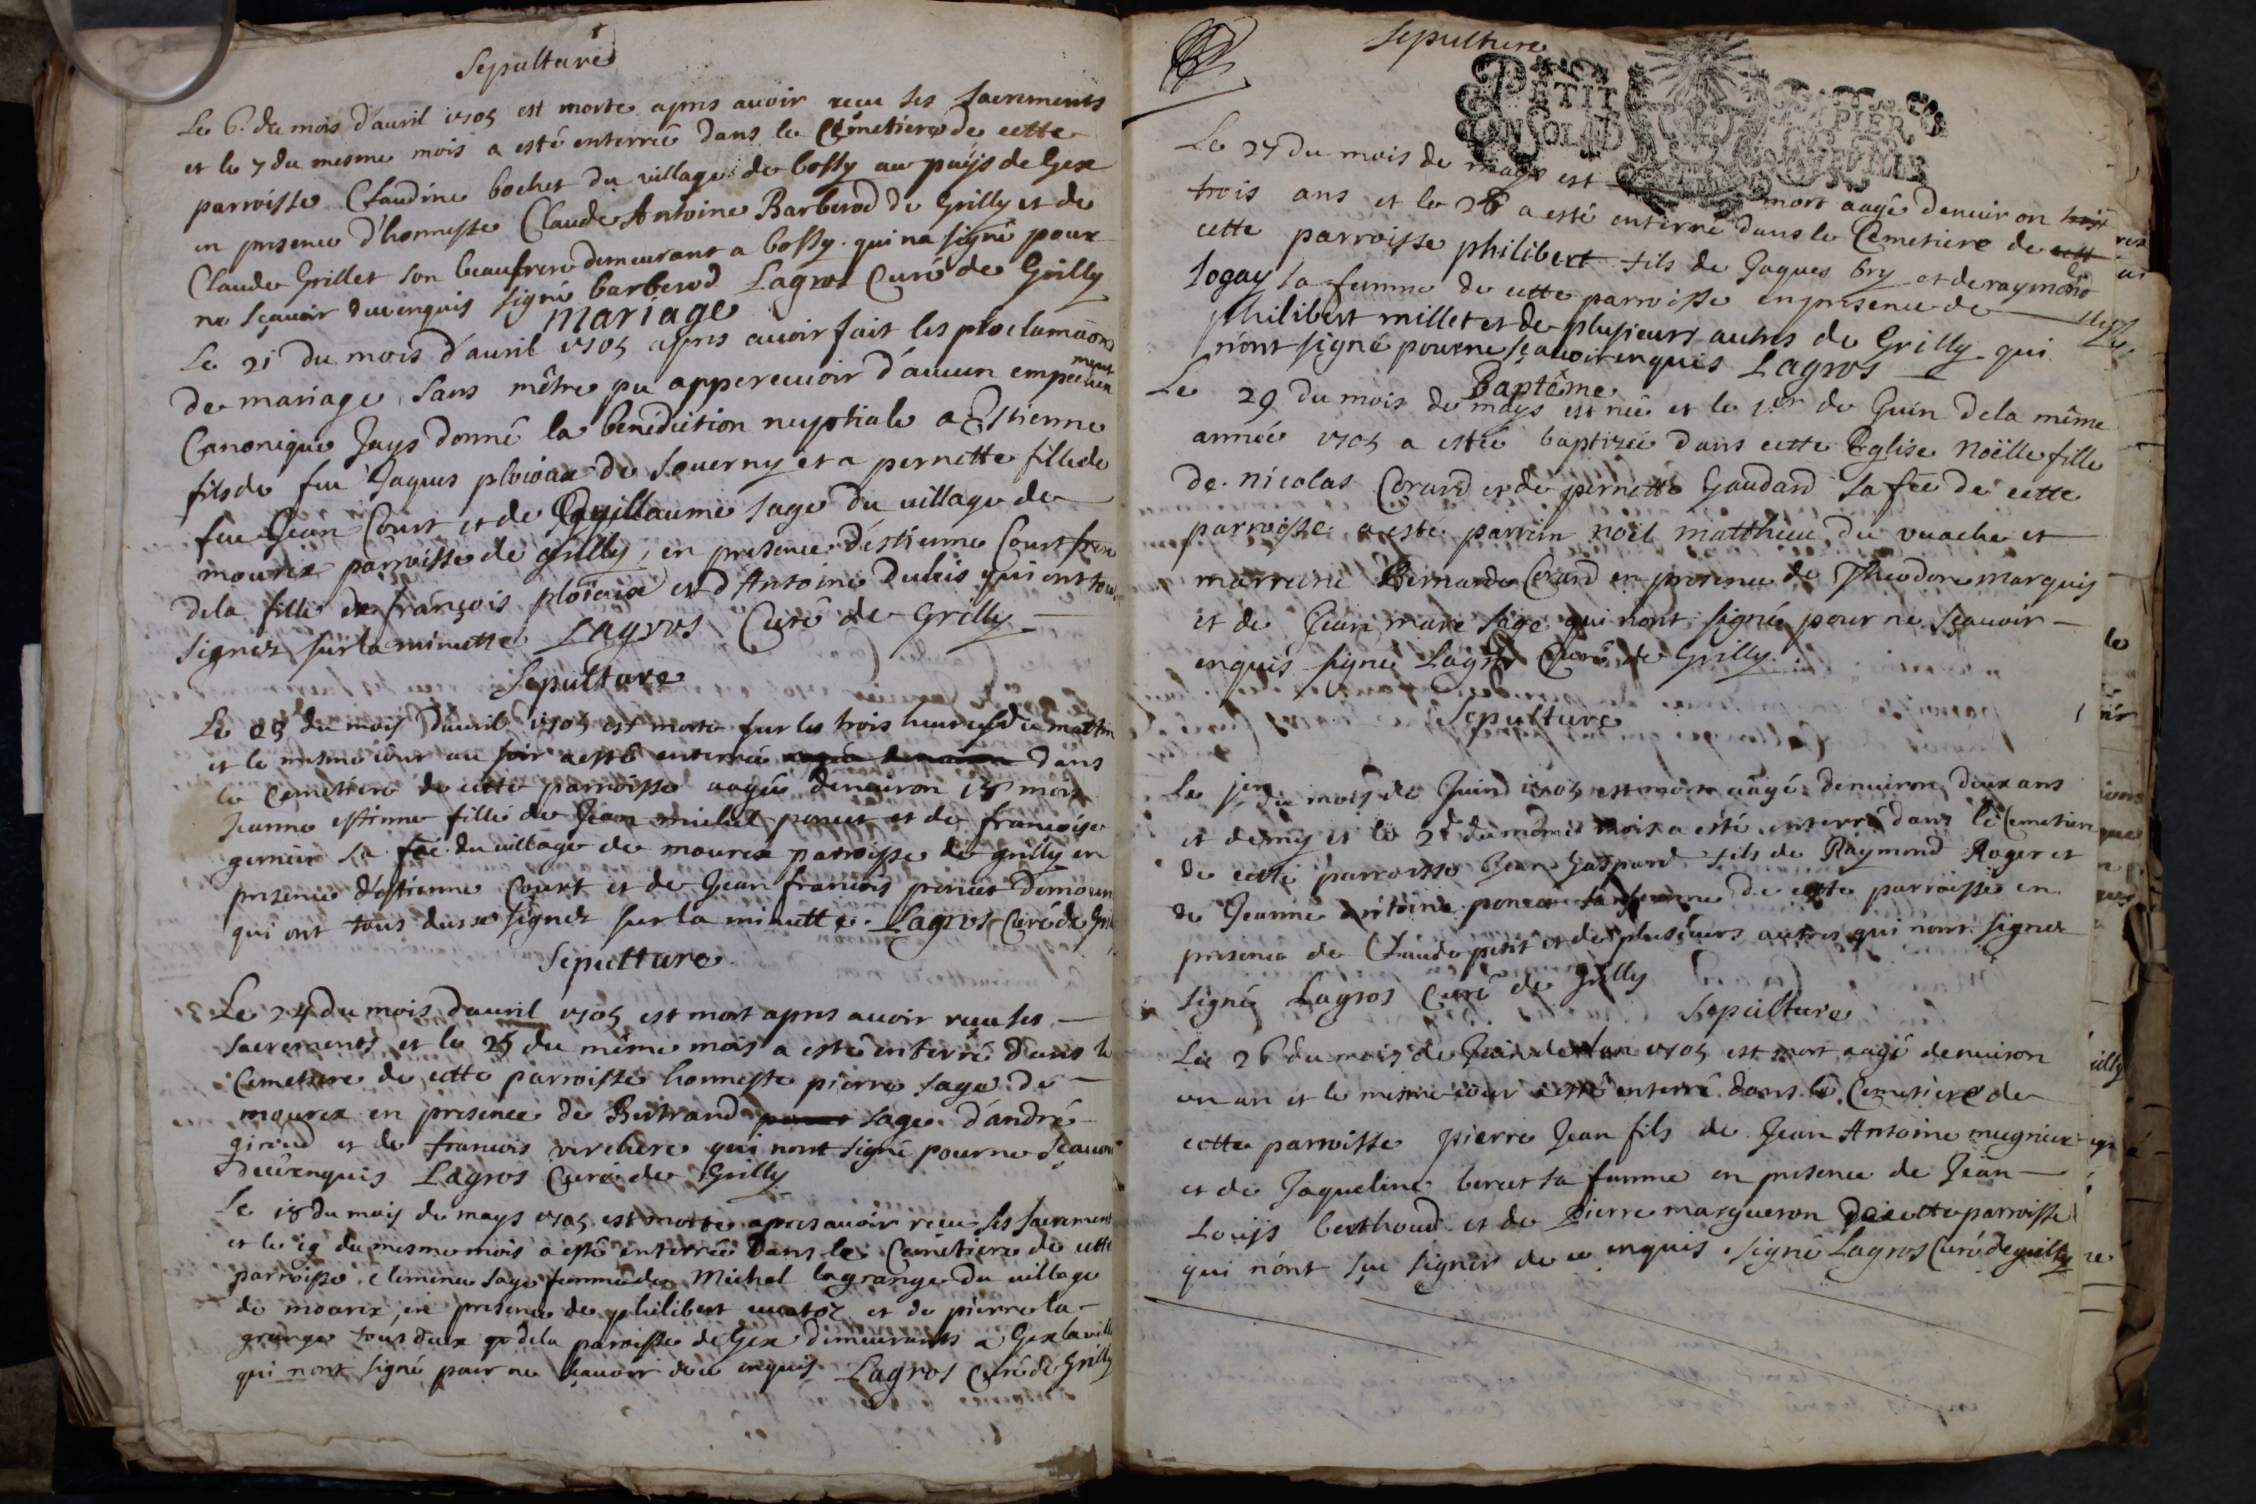 Sepulture
Le 6. du mois d'avril 1705 est morte apres avoir receu ses sacrements
et le 7 du mesme mois a esté enterrée dans le Cemetiere de cette
parroisse Claudine bochet du village de bossy au païs de Gex
en presence d'honneste Claude Antoine Barberod de Grilly et de
Claude Grillet son beaufrere demeurant a bossy qui na signé pour
ne sçavoir duenquis signé barberod Lagros Curé de Grilly
mariage
Le 21 du mois d'avril 1705 apres avoir fait les proclamaõns
de mariage, sans mêtre pu appercevoir d'aucun empechement
Canonique Jays donné la benediction nuptiale a Estienne
fils de feu Jaques ploioux de Sauverny et a pernette fille de
feu Jean Court et de Guillaume sage du village de
mourex parroisse de grilly, en presence d'estienne Court frere
de la fille de françois ploioux et d'Antoine Dubois qui ont tous
signez sur la minutte Lagros Curé de Grilly
Sepulture
Le 23 du mois d'avril 1705 est morte sur les trois heures du mattin
et le mesme iour au soir a esté enterrée dans
le cemetiere de cette parroisse aagée denviron 18 mois
Jeanne estienne fille de Jean michel poncet et de françoise
sa fẽe du village de mourex parroisse de grilly en
presence d'estienne Court et de Jean francois poncet
qui ont tous deux signez sur la minutte. Lagros Curé de
Sepulture
Le 24 du mois d'avril 1705 est mort apres avoir receu ses
sacrements et le 25 du même mois a esté enterré dans le
Cemetiere de cette parroisse honneste pierre sage de
mourex en presence de Bertrand sage d'andré
giroud et de francois verchere qui nont signé pour ne sçavoir
deüenquis Lagros Curé de Grilly
Le 18 du mois de mays 1705 est morte apres avoir receu ses sacrement
et le 19 du mesme mois a esté enterrée dans le Cemetiere de cette
parroisse Clemence sage femme de Michel lagrange du village
de mourex, en presence de philibert et de pierre la
grange tous deux de la parroisse de Gex demeurants a Gex la ville
qui nont signé pour ne sçavoir de ce enquis Lagros Curé de Grilly
Sepulture
PETIT PAPIER
Le 27 du mois de mays est mort aagé denviron
trois ans et le 28 a esté enterré dans le Cemetiere de
cette parroisse philibert fils de Jaques bry et de raymonde
sogay sa femme de cette parroisse en presence de
philibert millet et de plusieurs autres de Grilly qui
n'ont signé pour ne sçavoir enquis Lagros
Baptême
Le 29 du mois de mays est née et le 1er de Juin de la même
année 1705 a estée baptizée dans cette Eglise Noëlle fille
de nicolas Corard et de pernette Gaudard sa fẽe de cette
parroisse a esté parrein noël matthieu du vuache et
marreine Bernarde Corard en presence de Theodore marquis
et de Jean marc sage qui nont signé pour ne sçavoir
enquis signé Lagros Curé de Grilly
Sepulture
Le jer du mois de Juin 1705 est mort aagé denviron deux ans
et demy et le 2d du même mois a esté enterré dans le Cemetiere
de cette parroisse Jean Gaspard fils de Raymond Roger et
de Jeanne Antoine poncet sa femme de cette parroisse en
presence de Claude petit et de plusieurs autres qui n'ont signez
signé Lagros Curé de Grilly
Sepulture
Le 26 du mois de Juin de lan 1705 est mort aagé denviron
un an et le mesme iour a esté enterré dans le Cemetiere de
cette parroisse pierre Jean fils de Jean Antoine mugnier
et de Jaqueline beret sa femme en presence de Jean
Louijs berthoud et de pierre margueron de cette parroisse
qui n'ont sçu signer de ce enquis. signé Lagros Curé de grilly